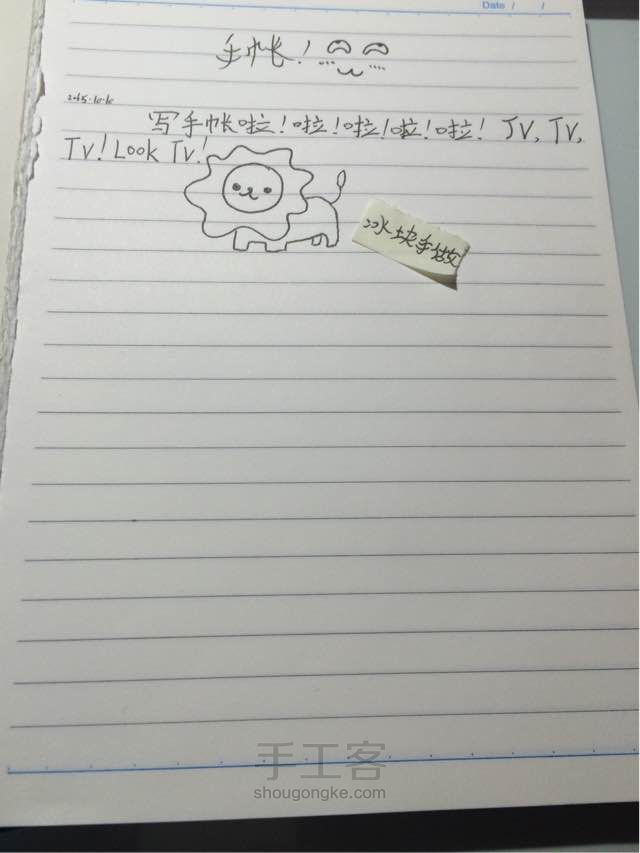 Date / /
手帐！
2015.10.10
写手帐啦！啦！啦！啦！啦！TV, TV,
TV! Look TV!
冰块手做
手工客
shougongke.com